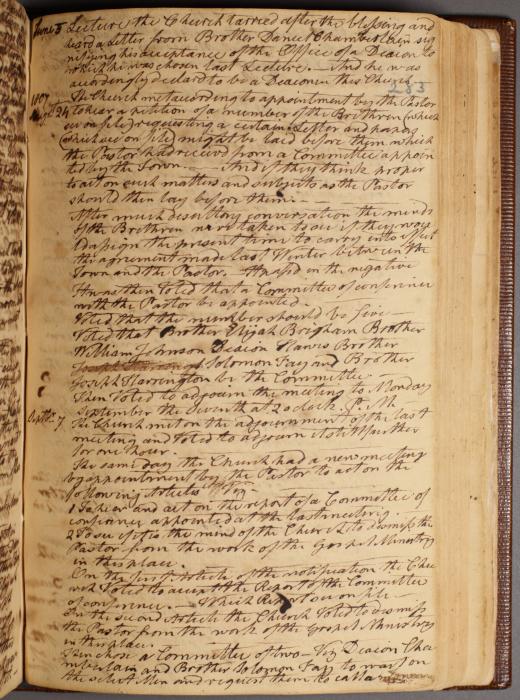 June 5 Lecture the Church tarried after the blessing and
heard a Letter from Brother Daniel Chamberlain sig
nifying his acceptance of the Office of a Deacon to
which he was chosen last Lecture. And he was
accordingly declard to be a Deacon in this Church
283
1807
24 The Church met according to appointment by the Pastor
to hear a petition of a number of the Brethren (which
is on file) requesting a certain Letter and papers
which are on file might be laid before them which
the Pastor had received from a Committee appoin
ted by the Town. And if they think proper
to act on such matters and subjects as the Pastor
should then lay before them.
After much desultory conversation the minds
of the Brethren were taken to see if they
the present time to carry into effect
the agreement made last Winter between the
Town and the Pastor. It passd in the negative
then Voted that a Committee of conference
with the Pastor be appointed.
Voted that the number should be five
Voted that Brother Elijah Brigham Brother
William Johnson Deacon Brother
Solomon Fay and Brother
Joseph Harrington be the Committee
Then Voted to adjourn the meeting to Monday
September the Seventh at 2 oclock P. M.
Septbr 7 The Church met on the adjournment of the last
meeting and Voted to adjourn it still further
for one hour.
The same day the Church had a new meeting
by appointment by the Pastor to act on the
following Articles
1 To hear and act on the report of a Committee of
conference appointed at the last meeting.
2 To see if it is the mind of the Church to dismiss the
Pastor from the work of the Gospel Ministry
in this place.
On the first Article of the notification the Chu
rch Voted to accept the Report of the Committee
of conference. Which Report is on file
On the second Article the Church Voted to dismiss
the Pastor from the work of the Gospel Ministry
in this place.
Then chose a Committee of two Viz Deacon Cha
mberlain and Brother Solomon Fay to wait on
the select Men and request them to call a